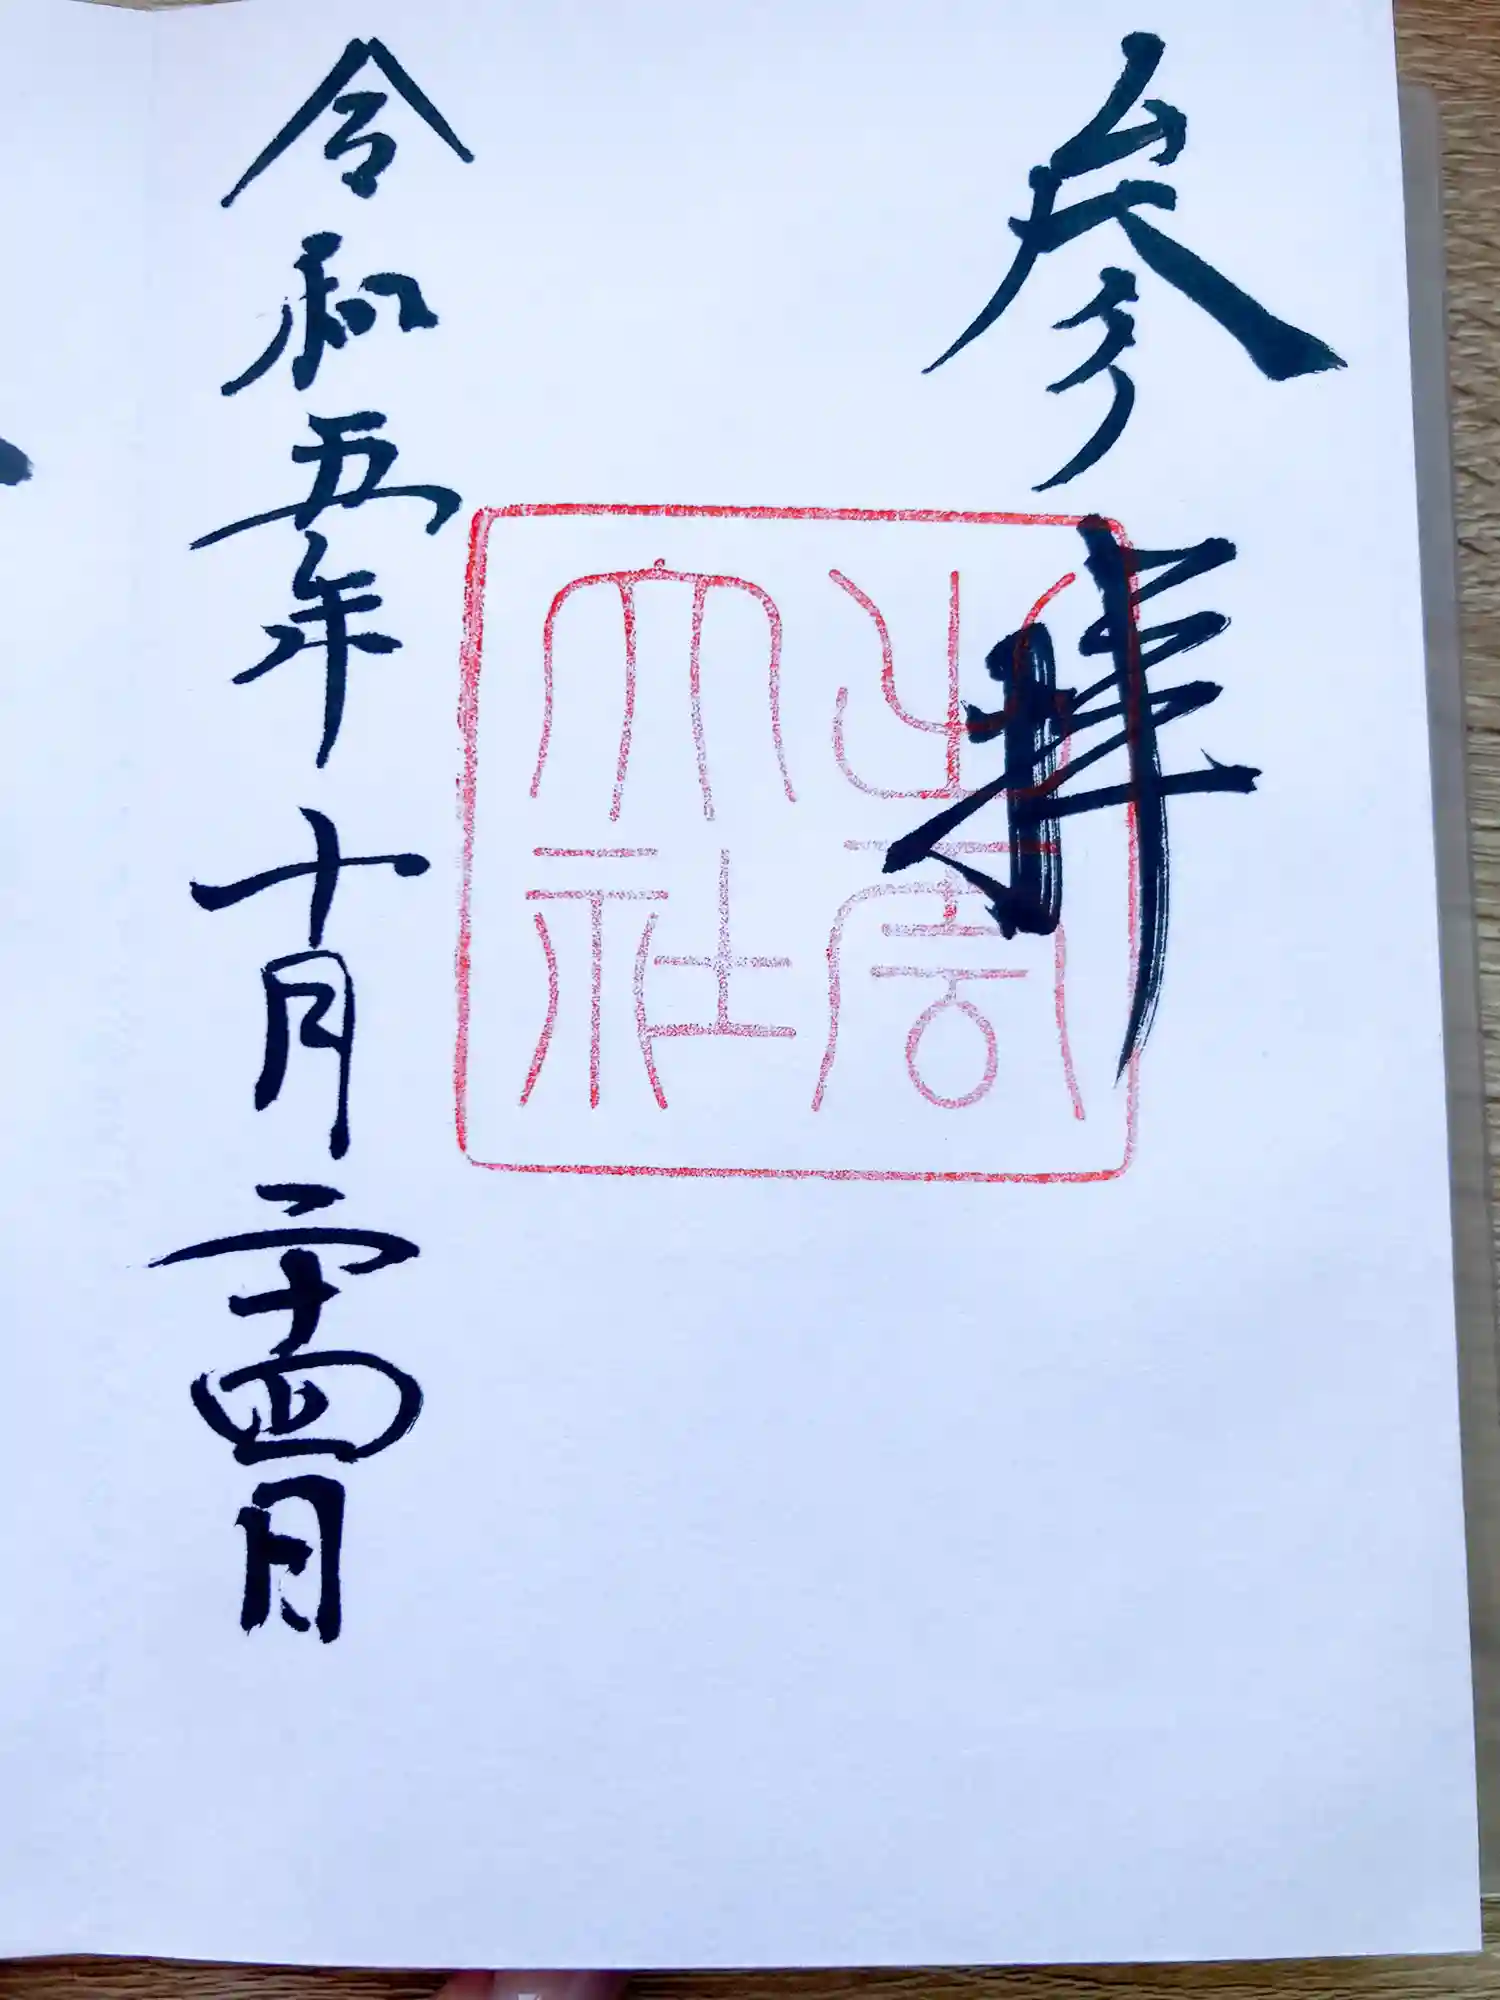 参拝
出雲
大社
令和五年十月二十四日